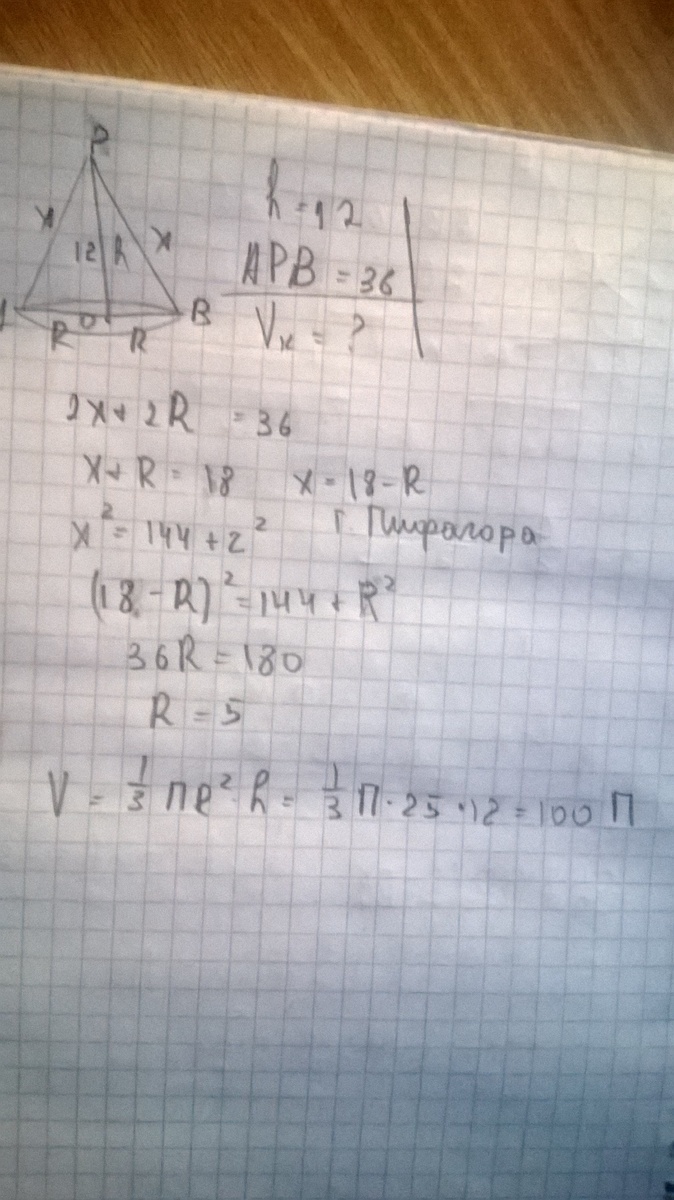 P
x
12 h
x
B
R O R
h = 12
APB = 36
Vк = ?
2x + 2R = 36
x + R = 18 x = 18 - R
x² = 144 + 2² т. Пифагора
(18 - R)² = 144 + R²
36R = 180
R = 5
V = 1/3 ПR² · h = 1/3 П · 25 · 12 = 100 П